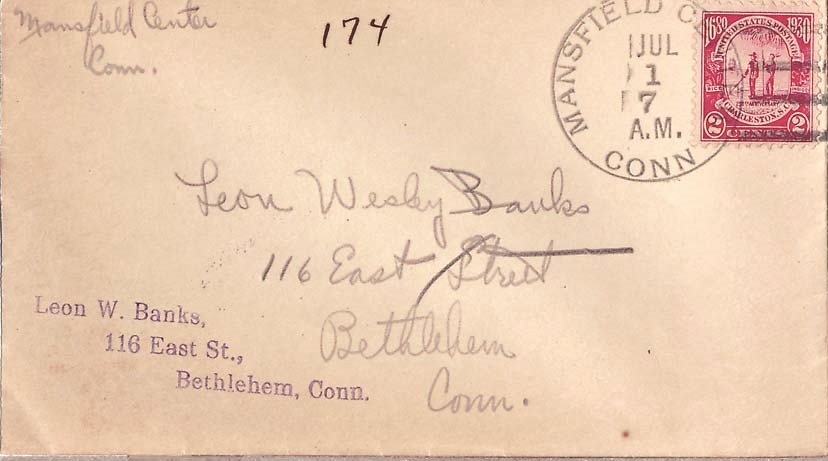 Mansfield Center
Conn.
174
MANSFIELD
CONN
JUL
1
7
A.M.
1680 1930
UNITED STATES POSTAGE
CHARLESTON, S.C.
2 CENTS 2
Leon Wesley Banks
116 East Street
Bethlehem
Conn.
Leon W. Banks,
116 East St.,
Bethlehem, Conn.